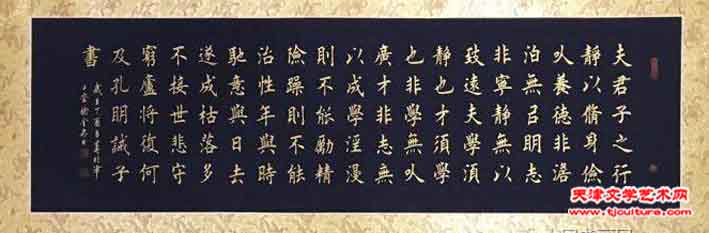 夫君子之行
靜以脩身儉
以養德非澹
泊無以明志
非寧靜無以
致遠夫學須
靜也才須學
也非學無以
廣才非志無
以成學淫漫
則不能勵精
險躁則不能
治性年與時
馳意與日去
遂成枯落多
不接世悲守
窮廬將復何
及孔明誡子
書
歲在丁酉
天津文学艺术网
www.tjculture.com